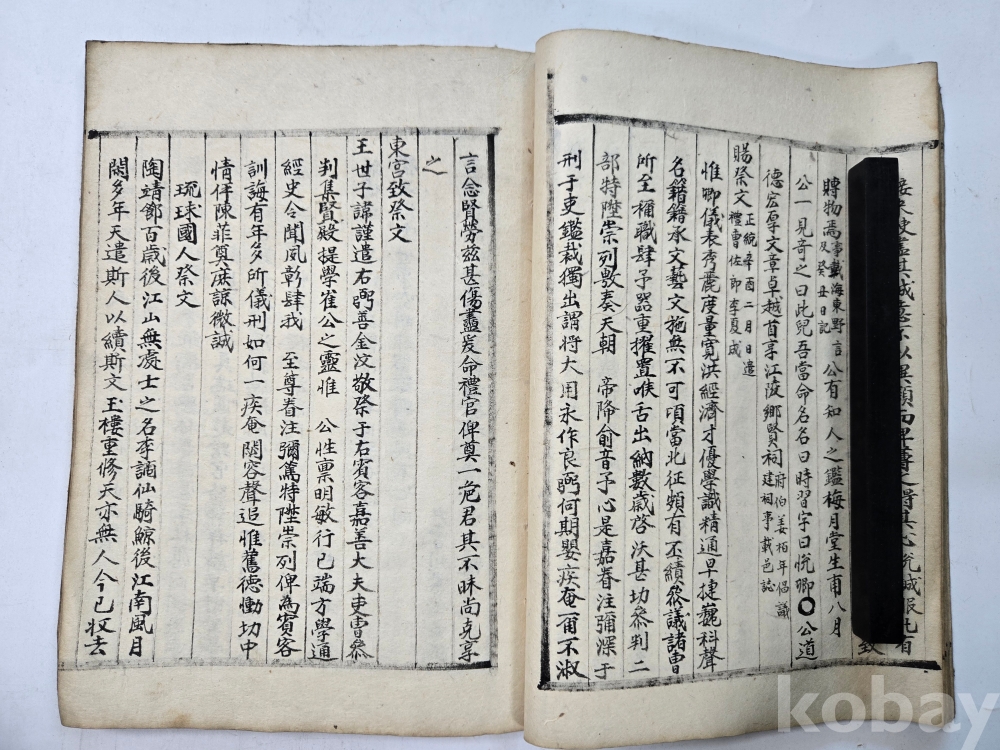 賻物焉事載海東野言及癸丑日記公有知人之鑑梅月堂生甫八月
公一見奇之曰此兒吾當命名名曰時習字曰悅卿〇公道
德宏厚文章卓越首享江陵鄕賢祠府伯姜栢年倡議建祠事載邑誌
賜祭文正統辛酉二月日遣禮曹佐郞李夏成
惟卿儀表秀麗度量寬洪經濟才優學識精通早捷巍科聲
名籍籍承文藝文施無不可項當北征頻有丕績僉議諸曹
所至稱職肆予器重擢置喉舌出納數歲啓沃甚切叅判二
部特陞崇列敷奏天朝 帝降俞音予心是嘉眷注彌深于
刑于吏鑑裁獨出謂將大用永作良弼何期嬰疾奄爾不淑
言念賢勞玆甚傷盡爰命禮官俾奠一巵君其不昧尚克享
之
東宮致祭文
王世子諱謹遣右弼善金汶敬祭于右賓客嘉善大夫吏曹叅
判集賢殿提學崔公之靈惟 公性禀明敏行已端方學通
經史令聞夙彰肆我 至尊眷注彌篤特陞崇列俾為賓客
訓誨有年多所儀刑如何一疾奄閟容聲追惟舊德慟切中
情伻陳菲奠庶諒微誠
琉球國人祭文
陶靖節百歲後江山無處士之名李謫仙騎鯨後江南風月
閑多年天遣斯人以續斯文玉樓重修天亦無人今已收去
kobay